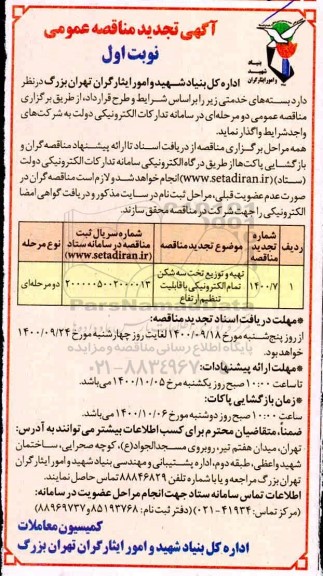 آگهی تجدید مناقصه عمومی
نوبت اول
بنیاد
شهید
و امور ایثارگران
اداره کل بنیاد شهید و امور ایثارگران تهران بزرگ در نظر
دارد بسته‌های خدمتی زیر را بر اساس شرایط و طرح قرارداد، از طریق برگزاری
مناقصه عمومی دو مرحله‌ای در سامانه تدارکات الکترونیکی دولت به شرکت‌های
واجد شرایط واگذار نماید.
همه مراحل برگزاری مناقصه از دریافت اسناد تا ارائه پیشنهاد مناقصه گران و
بازگشایی پاکت‌ها از طریق درگاه الکترونیکی سامانه تدارکات الکترونیکی دولت
(ستاد) (www.setadiran.ir) انجام خواهد شد و لازم است مناقصه گران در
صورت عدم عضویت قبلی، مراحل ثبت نام در سایت مذکور و دریافت گواهی امضا
الکترونیکی را جهت شرکت در مناقصه محقق سازند.
ردیف | شماره تجدید مناقصه | موضوع تجدید مناقصه | شماره سریال ثبت مناقصه در سامانه ستاد (www.setadiran.ir) | نوع مرحله
۱ | ۱۴۰۰/۷ | تهیه و توزیع تخت سه شکن تمام الکترونیکی با قابلیت تنظیم ارتفاع | ۲۰۰۰۰۰۵۰۰۲۰۰۰۰۱۳ | دو مرحله‌ای
*مهلت دریافت اسناد تجدید مناقصه:
از روز پنج‌شنبه مورخ ۱۴۰۰/۰۹/۱۸ لغایت روز چهارشنبه مورخ ۱۴۰۰/۰۹/۲۴
خواهد بود.
*مهلت ارائه پیشنهادات:
تا ساعت ۱۰:۰۰ صبح روز یکشنبه مرخ ۱۴۰۰/۱۰/۰۵ می‌باشد.
*زمان بازگشایی پاکات:
ساعت ۱۰:۰۰ صبح روز دوشنبه مورخ ۱۴۰۰/۱۰/۰۶ می‌باشد.
ضمناً، متقاضیان محترم برای کسب اطلاعات بیشتر می‌توانند به آدرس:
تهران، میدان هفتم تیر، روبروی مسجد الجواد(ع)، کوچه صحرایی، ساختمان
شهید واعظی، طبقه دوم، اداره پشتیبانی و مهندسی بنیاد شهید و امور ایثارگران
تهران بزرگ مراجعه و یا با شماره تلفن ۸۸۸۴۶۸۲۹ تماس حاصل نمایند.
اطلاعات تماس سامانه ستاد جهت انجام مراحل عضویت در سامانه:
(مرکز تماس: ۴۱۹۳۴-۰۲۱) (دفتر ثبت نام: ۸۵۱۹۳۷۶۸ و ۸۸۹۶۹۷۳۷)
کمیسیون معاملات
اداره کل بنیاد شهید و امور ایثارگران تهران بزرگ
پایگاه اطلاع رسانی مناقصه و مزایده